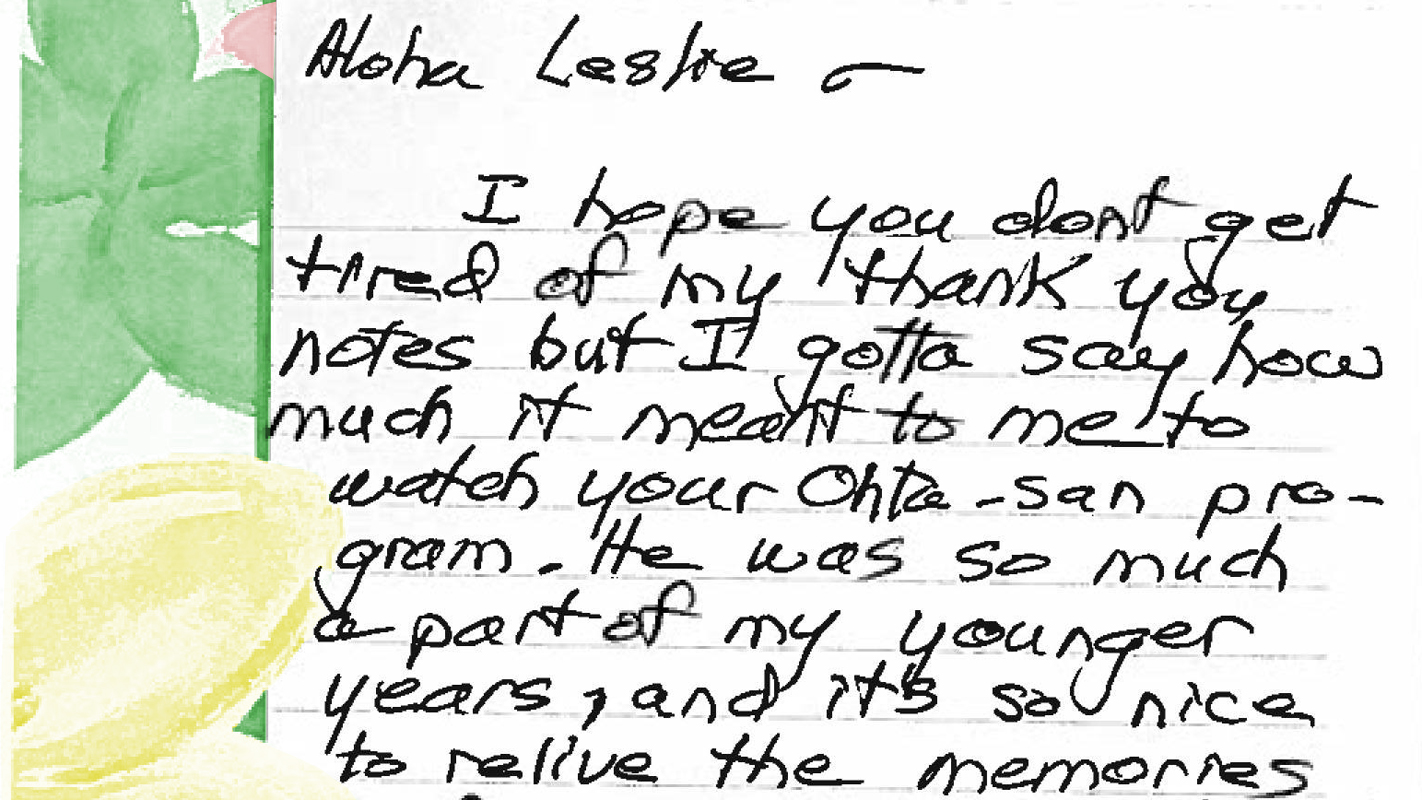 Aloha Leslie —
I hope you dont get
tired of my thank you
notes but I gotta say how
much it meant to me to
watch your Ohta-san pro-
gram. He was so much
a part of my younger
years, and it's so nice
to relive the memories